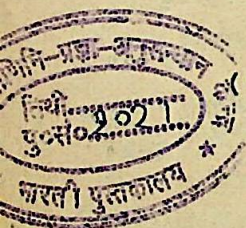 णिनि-प्रज्ञा-अनुसन्धान
तिथी..............
पु०सं० 2021
*
भारती पुस्तकालय